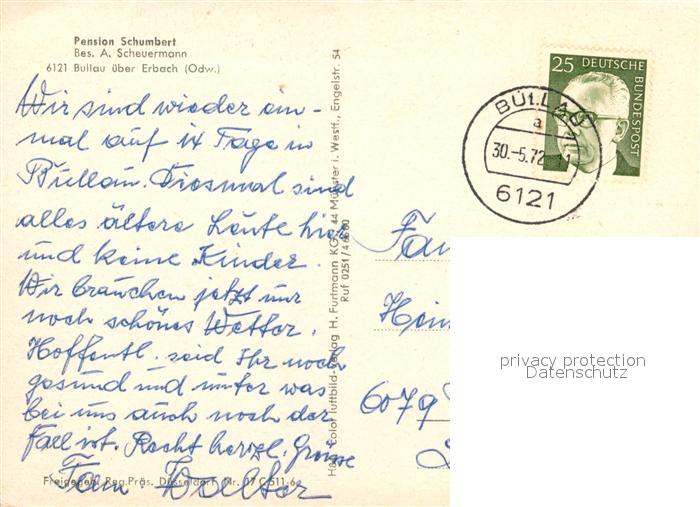 Pension Schumbert
Bes. A. Scheuermann
6121 Bullau über Erbach (Odw.)
Wir sind wieder ein-
mal auf 14 Tage in
Bullau. Diesmal sind
alles ältere Leute hier
und keine Kinder.
Wir brauchen jetzt nur
noch schönes Wetter.
Hoffentl. seid Ihr noch
gesund und munter was
bei uns auch noch der
Fall ist. Recht herzl. Grüsse
Fam Walter
Freigegeb. Reg.Präs. Düsseldorf Nr. 17 C 511 6
Color luftbild-Verlag H. Furtmann KG, 44 Münster i. Westf., Engelstr. 54
Ruf 0251/46660
25 DEUTSCHE BUNDESPOST
BULLAU
a
30.-5.72-11
6121
Fam
Hein
6079
privacy protection
Datenschutz